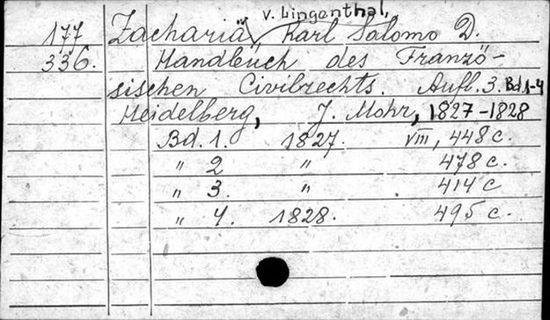 v. Lingenthal,
177 Zachariä, Karl Salomo D.
336. Handbuch des Franzö-
sischen Civilrechts. Aufl. 3. Bd 1-4
Heidelberg, J. Mohr, 1827-1828
Bd. 1. 1827. VIII, 448 c.
" 2 " 478 c.
" 3. " 414 c
" 4. 1828. 495 c.